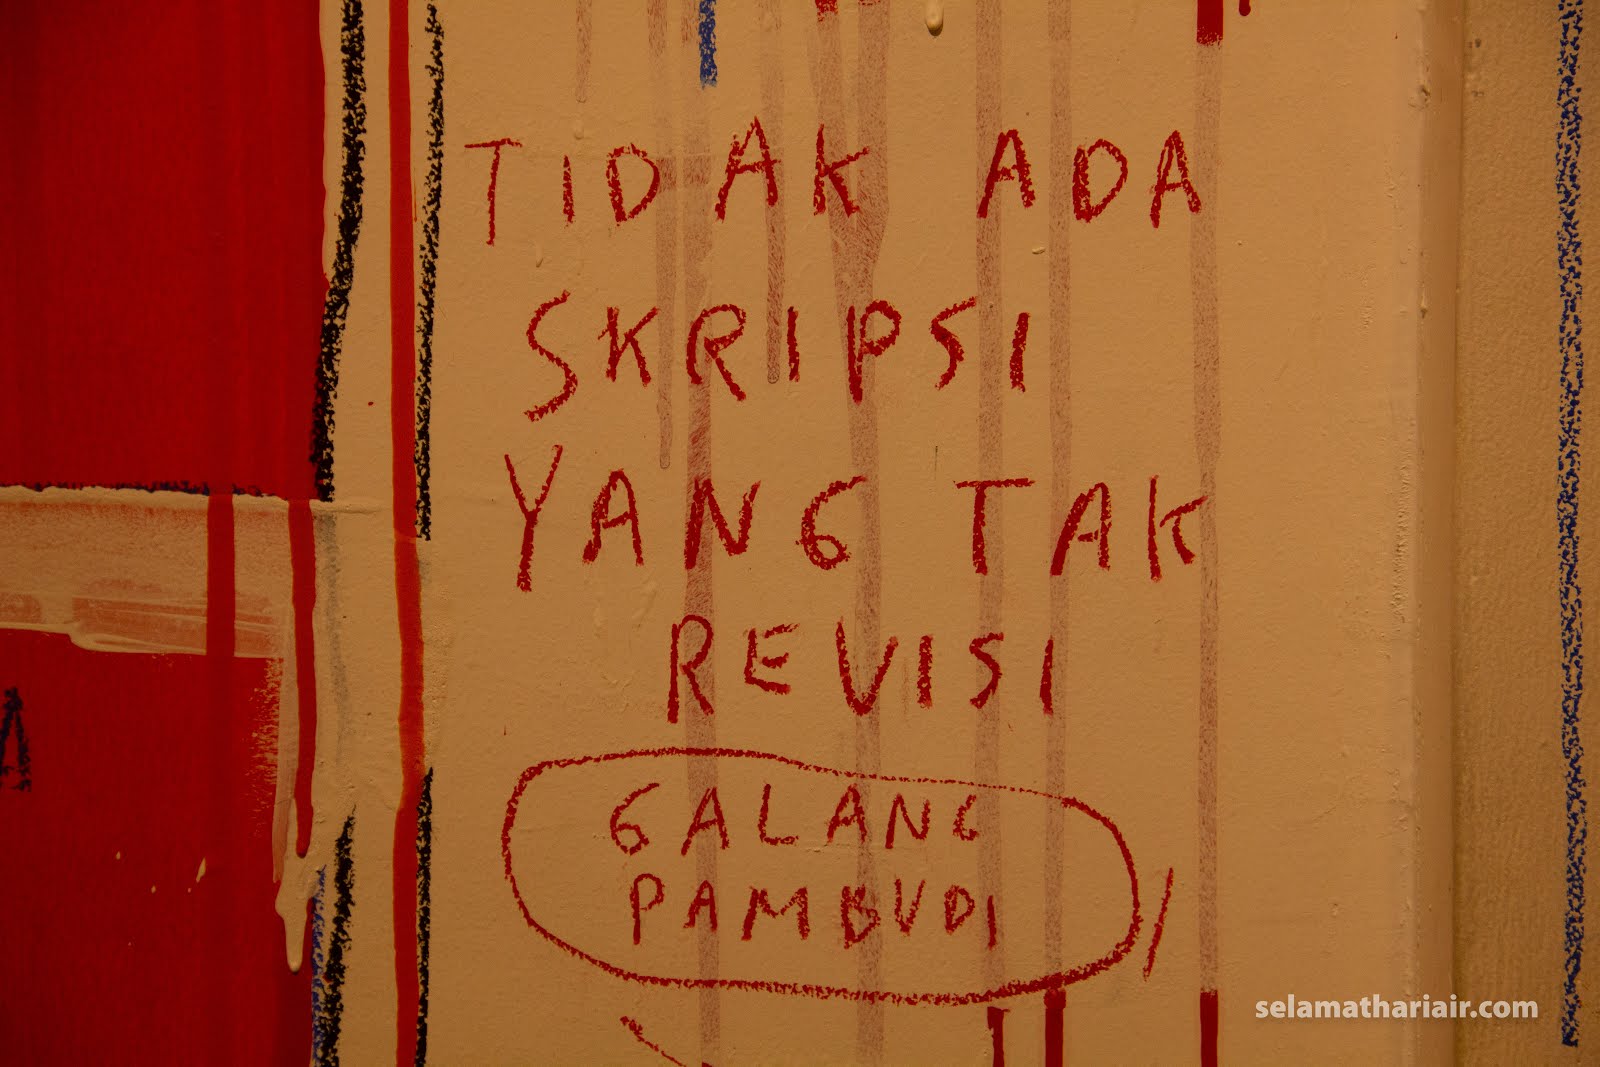 TIDAK ADA
SKRIPSI
YANG TAK
REVISI
GALANG
PAMBUDI
A
selamathariair.com